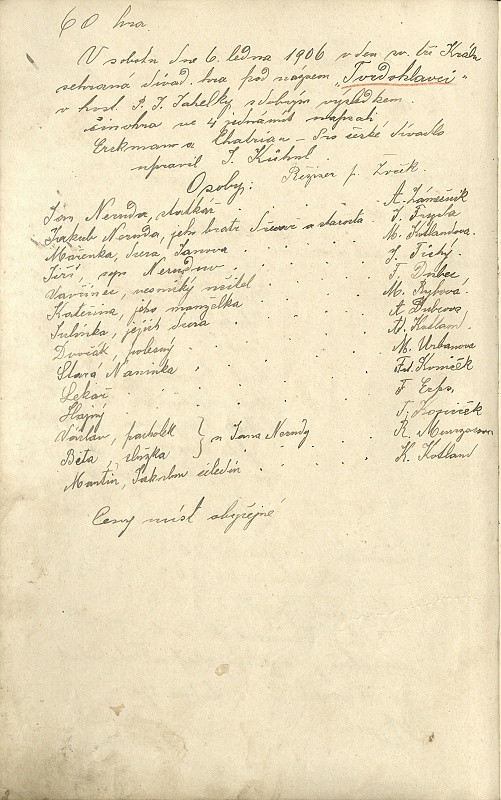 60 hra.
V sobotu dne 6. ledna 1906 v den sv. tří Králů
sehraná divad. hra pod názvem „Tvrdohlavci“
v host. P. J. Sahelky s dobrým výsledkem.
Činohra ve 4 jednáních napsali
Erckmann a Chatrian – Pro české divadlo
upravil J. Kühnl.
Osoby: Režiser p. Zvěk.
Jan Neruda, statkář A. Zámečník
Jakub Neruda, jeho bratr, a starosta J. Fryda
Mařenka, dcera Janova M. Kotlandova
Jiří, syn Nerudův J. Tichý
Vavřinec, vesnický učitel F. Dubec
Kateřina, jeho manželka M. Rybová
Julinka, jejich dcera A. Dubcova
Dvořák, polesný A. Kotland
Stará Naninka M. Urbanova
Lekař Fr. Koníček
Hajný F. Erps
Václav, pacholek } u Jana Nerudy
Běta, služka R.
Martin, Jakubův čeledín K. Kotland
Ceny míst obyčejné